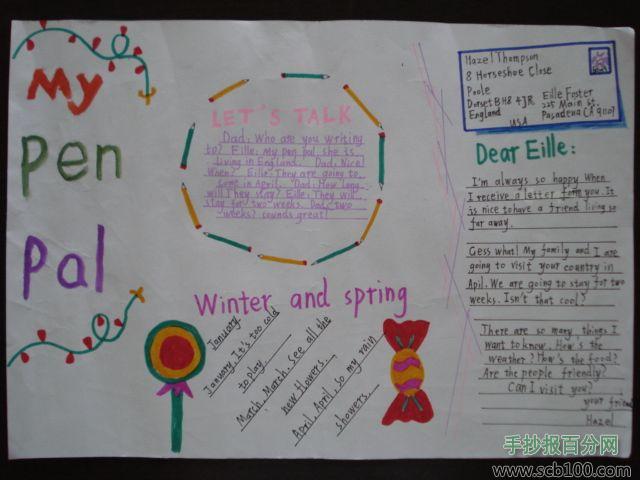 My
Pen
Pal
LET'S TALK
Dad: Who are you writing
to? Eille: My pen pal, she is
living in England. Dad: Nice!
When? Eille: They are going to
come in April. Dad: How long
will They stay? Eille: They will
stay for two weeks. Dad: two
weeks? counds great!
Winter and spring
January,
January. It's too cold
to play
March, March. See all the
new flowers.
April, April, so my rain
showers.
Hazel Thompson
8 Horseshoe Close
Poole
Dorset BH8 4JR
England
Eille Foster
225 Main St.
Pasadena CA 91107
USA
Dear Eille:
I'm always so happy When
I receive a letter form you. It
is nice to have a friend living so
far away.
Gess what! My family and I are
going to visit your country in
Apil. We are going to stay for two
weeks. Isn't that cool?
There are so many things I
want to know. How's the
weather? How's the food?
Are the people friendly?
Can I visit you?
your friend
Hazel
手抄报百分网
www.scb100.com